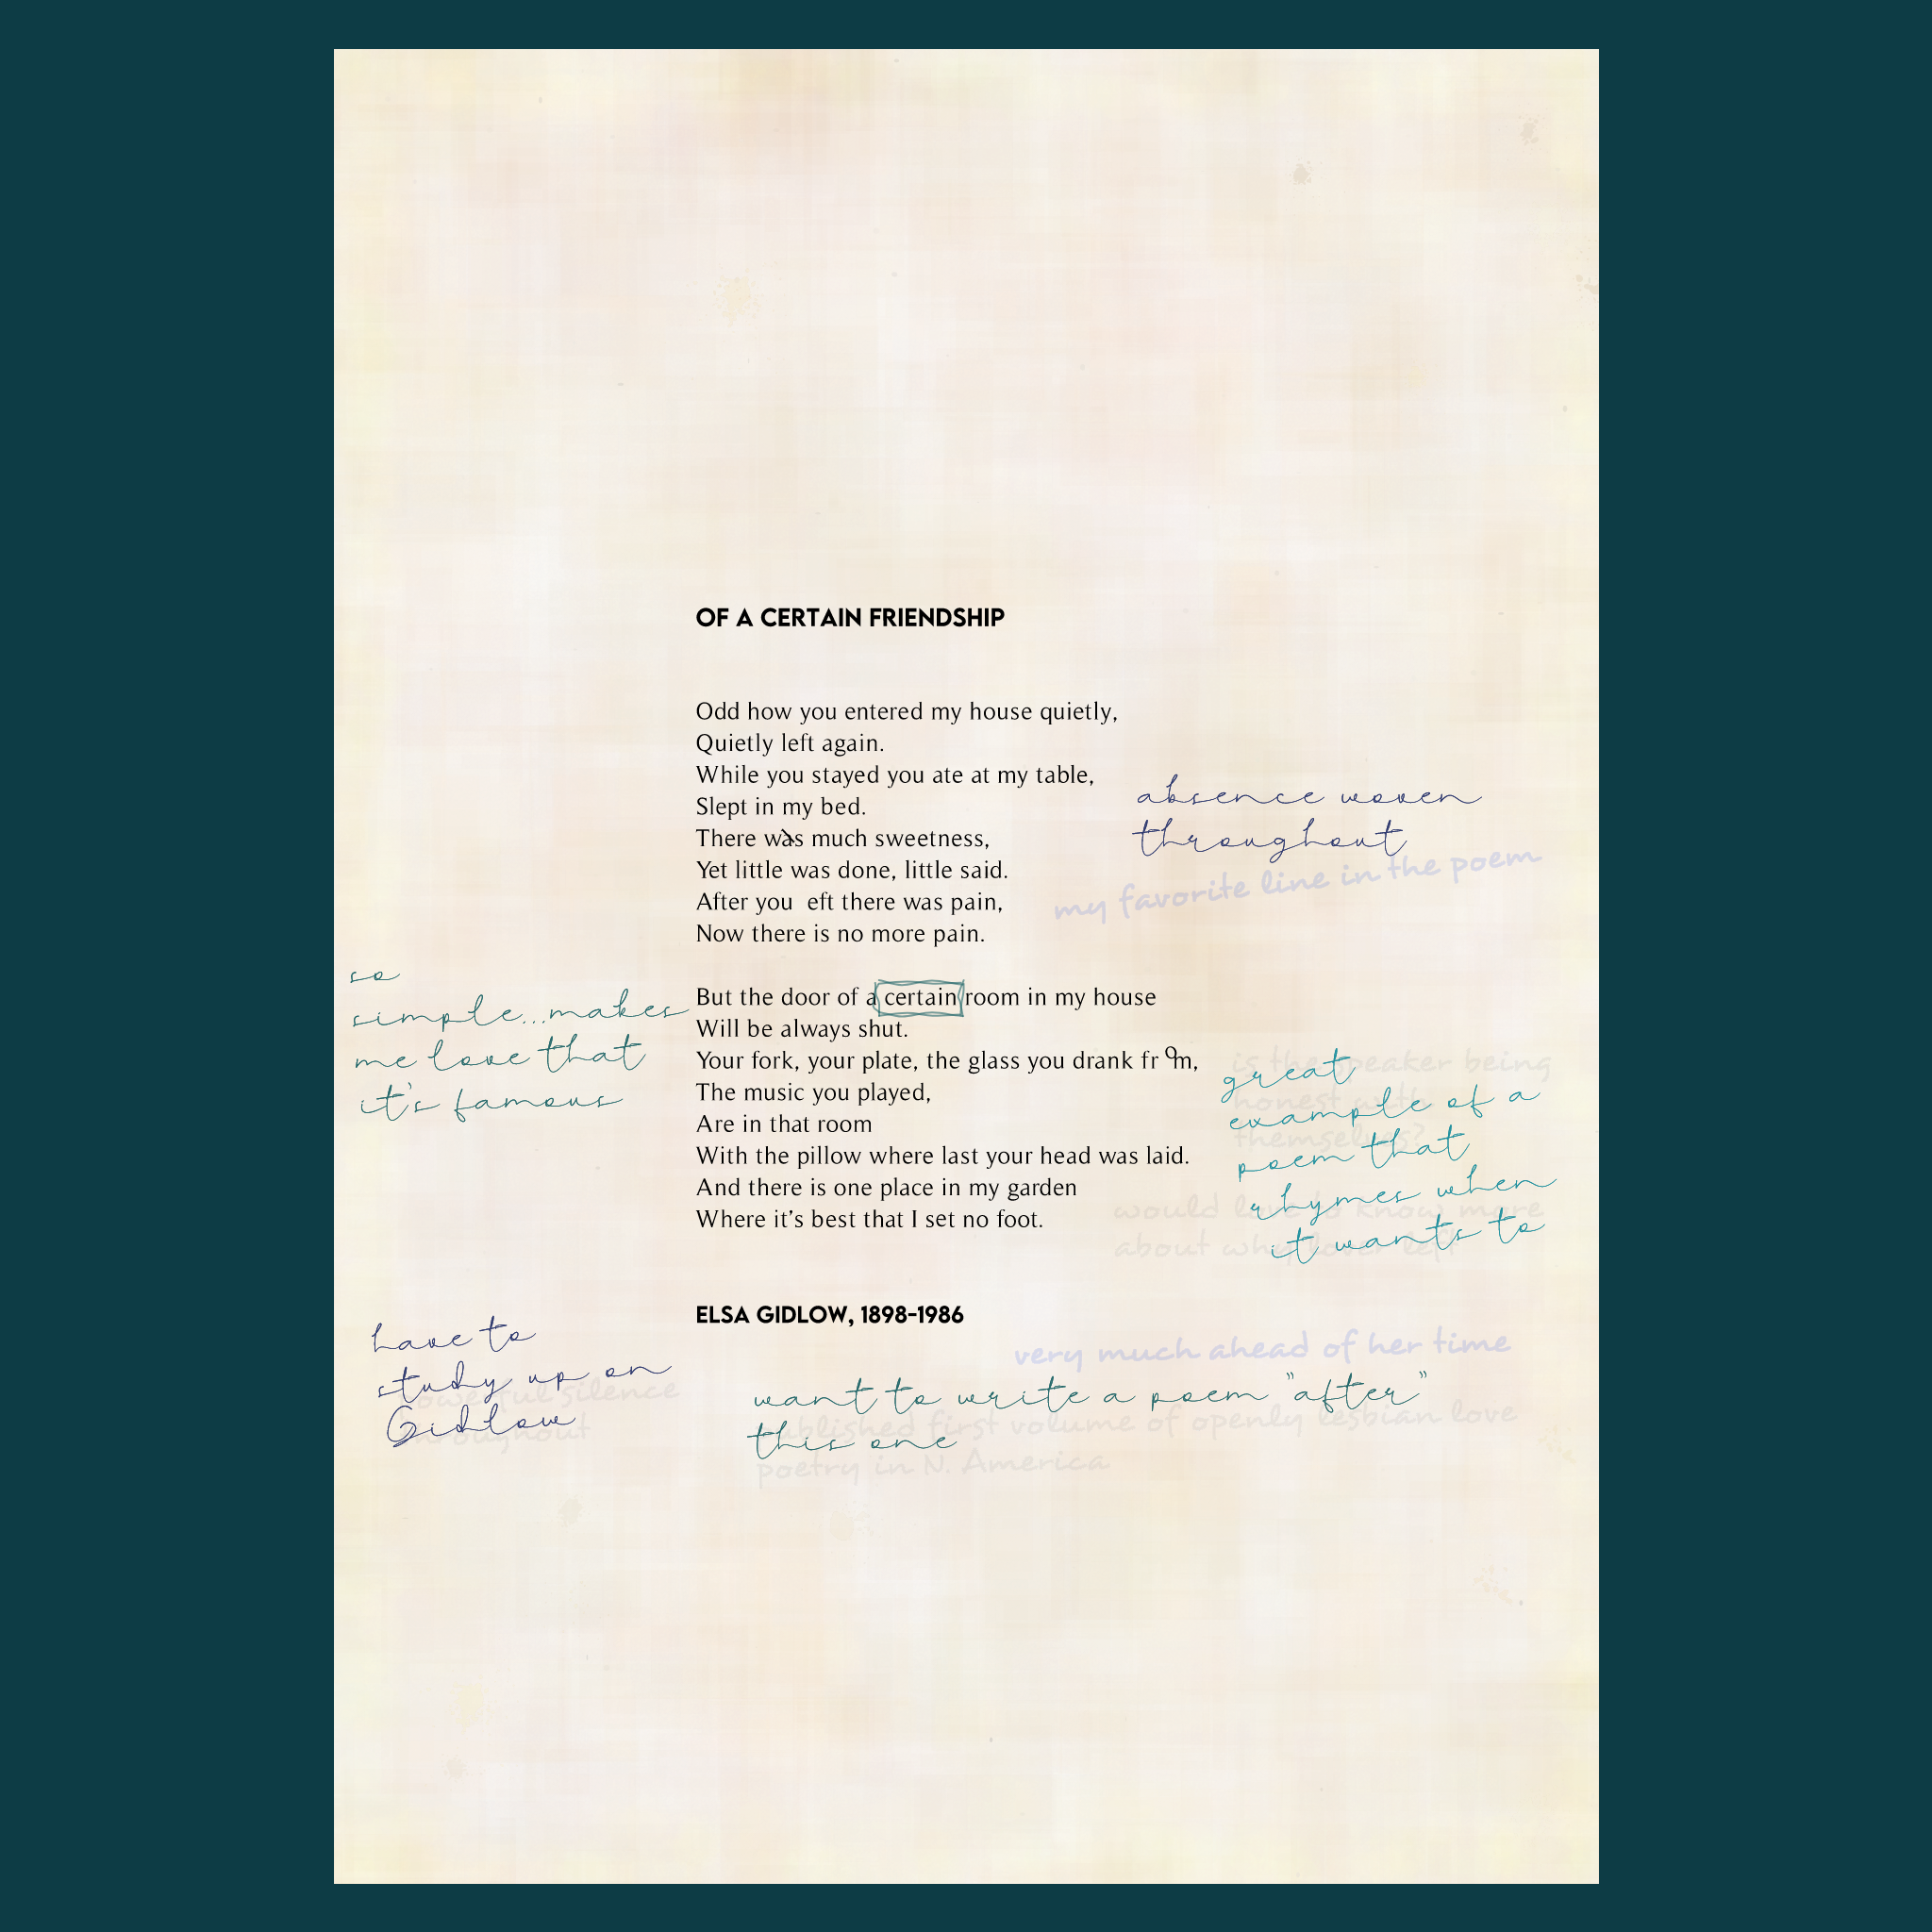 OF A CERTAIN FRIENDSHIP
Odd how you entered my house quietly,
Quietly left again.
While you stayed you ate at my table,
Slept in my bed.
There was much sweetness,
Yet little was done, little said.
After you  eft there was pain,
Now there is no more pain.
absence woven
throughout
my favorite line in the poem
so
simple...makes
me love that
it's famous
But the door of a certain room in my house
Will be always shut.
Your fork, your plate, the glass you drank fr om,
The music you played,
Are in that room
With the pillow where last your head was laid.
And there is one place in my garden
Where it’s best that I set no foot.
is the speaker being
honest with
themselves?
great
example of a
poem that
rhymes when
it wants to
would love to know more
about why lover left
ELSA GIDLOW, 1898-1986
very much ahead of her time
have to
study up on
Gidlow
powerful silence
throughout
want to write a poem "after"
this one
published first volume of openly lesbian love
poetry in N. America